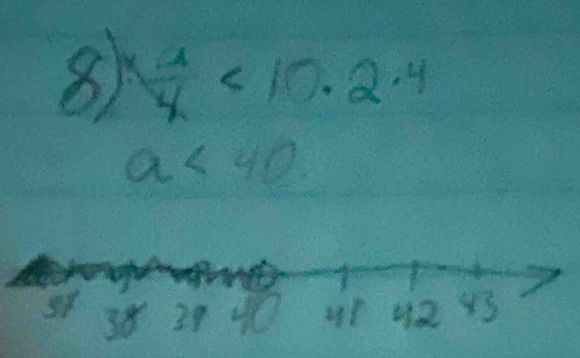 8) a/4 < 10.2.4
a < 40
37 38 39 40 41 42 43